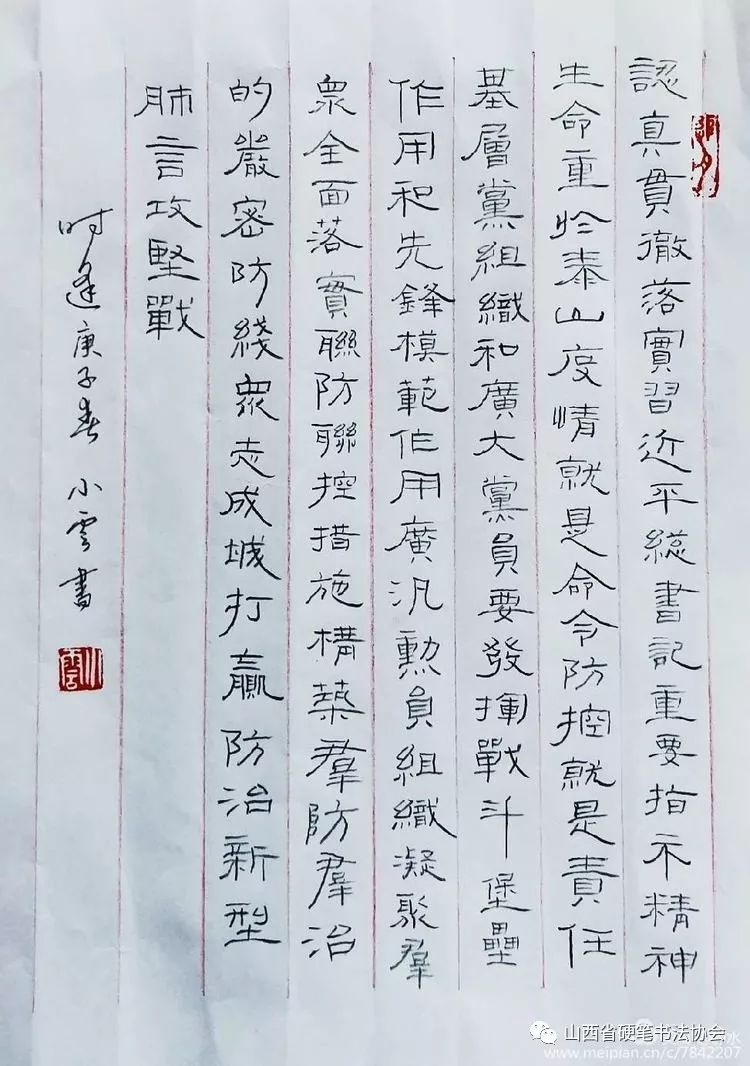 認真貫徹落實習近平総書記重要指示精神
生命重於泰山疫情就是命令防控就是責任
基層黨組織和廣大黨員要發揮戰斗堡壘
作用和先鋒模範作用廣汎勲員組織凝聚羣
衆全面落實聯防聯控措施構築羣防羣治
的嚴密防綫衆志成城打贏防治新型
肺言攻堅戰
时逢庚子春 小雲書
山西省硬笔书法协会
www.meipian.cn/c/7842207